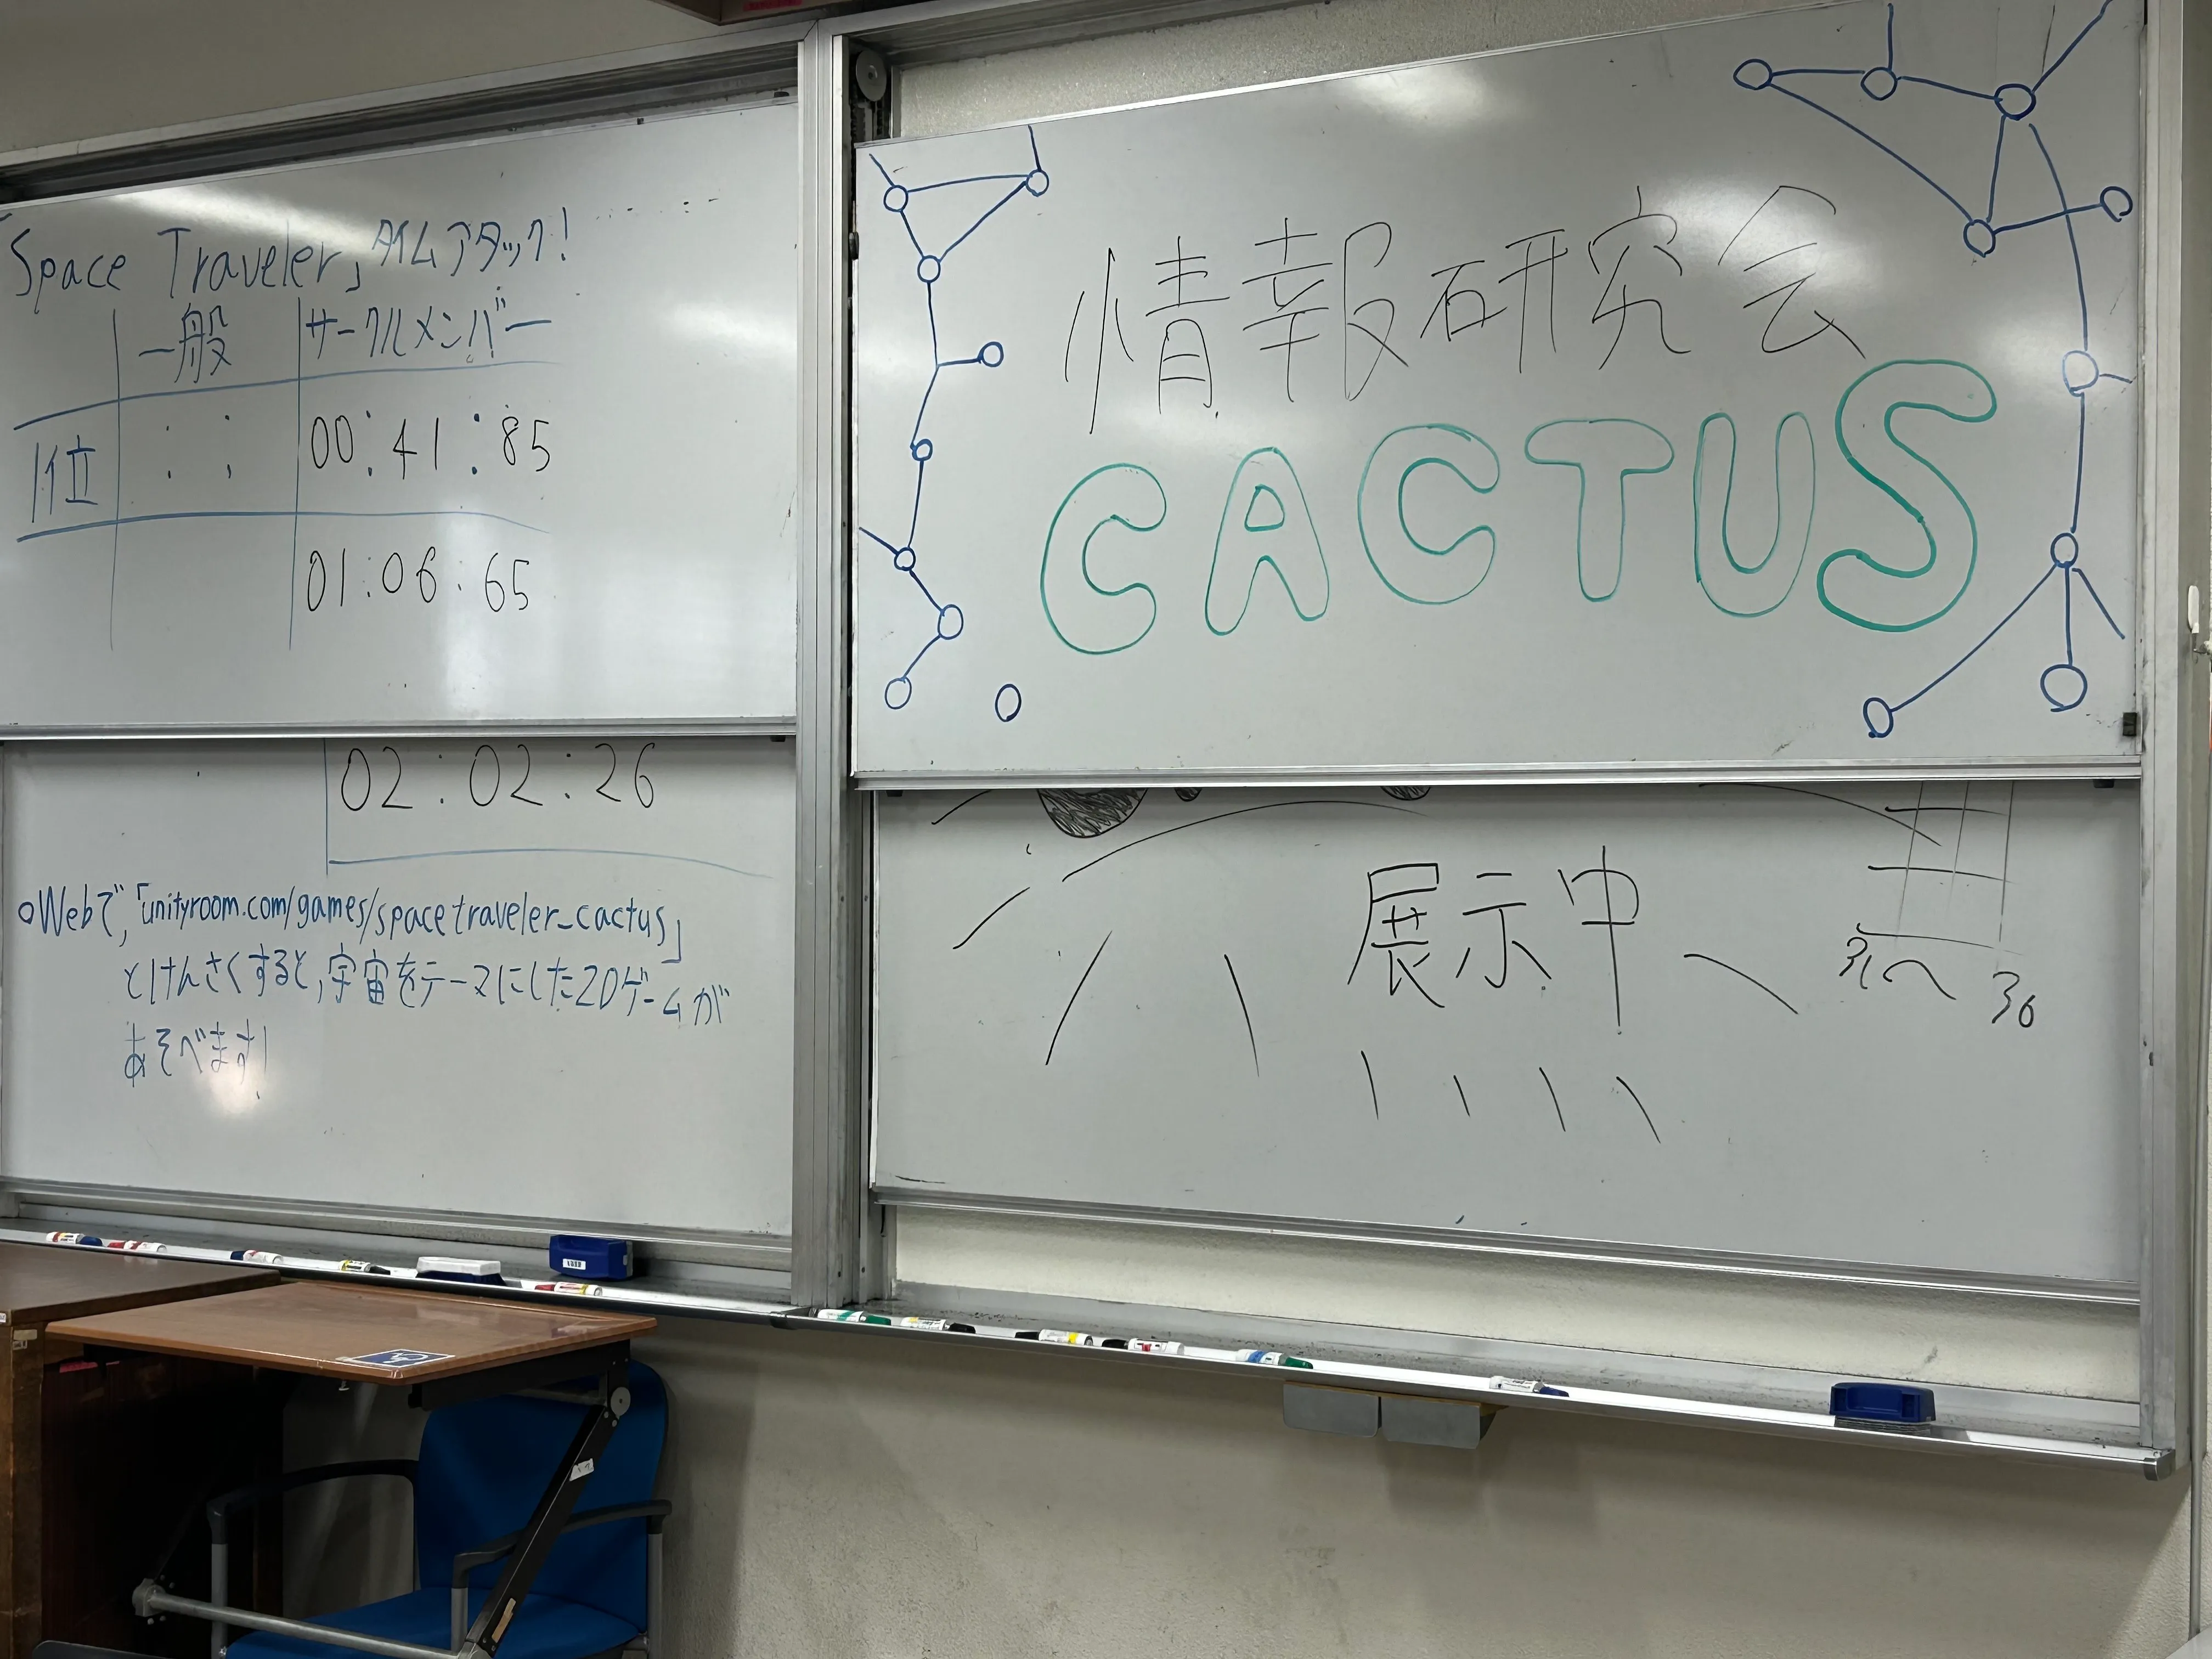 「Space Traveler」タイムアタック!
一般 サークルメンバー
1位 : : 00:41:85
01:06:65
02:02:26
○Webで,「unityroom.com/games/spacetraveler_cactus」
とけんさくすると,宇宙をテーマにした2Dゲームが
あそべます!
情報研究会
CACTUS
展示中